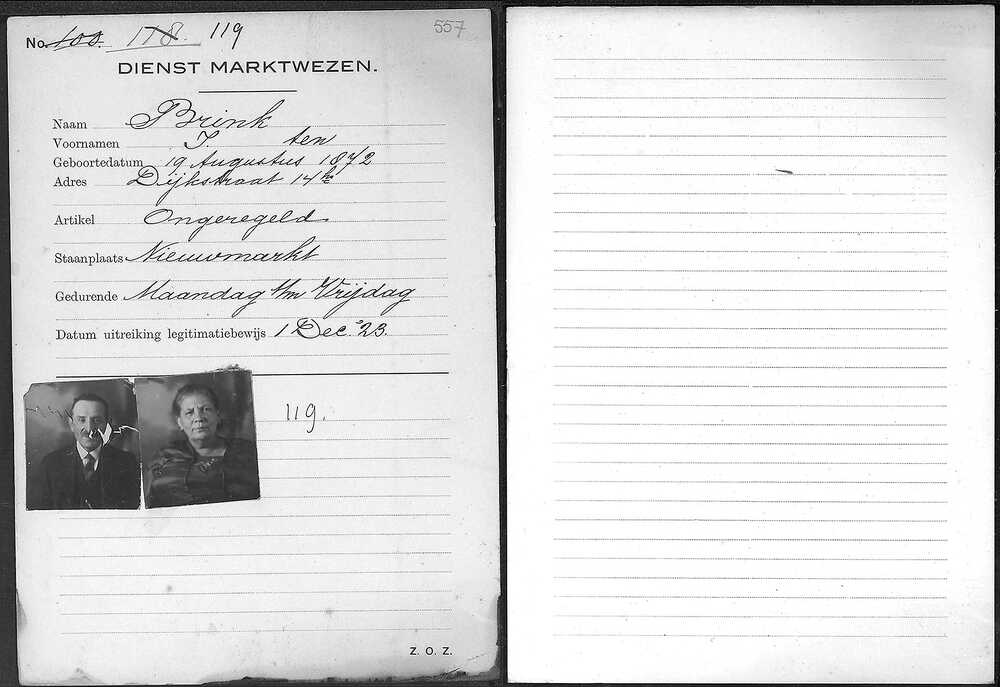 No. 100. 118. 119
557
DIENST MARKTWEZEN.
Naam Brink
Voornamen I. ten
Geboortedatum 19 Augustus 1872
Adres Dijkstraat 14 hs
Artikel Ongeregeld
Staanplaats Nieuwmarkt
Gedurende Maandag t/m Vrijdag
Datum uitreiking legitimatiebewijs 1 Dec. '23.
119.
Z. O. Z.